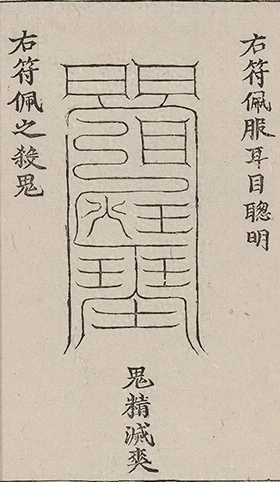 右符佩服耳目聰明
鬼精滅爽
右符佩之殺鬼